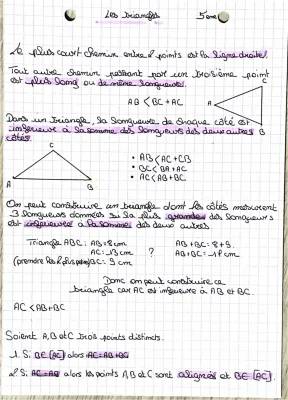 Les triangles 5ème
Le plus court chemin entre 2 points est la ligne droite!
Tout autre chemin passant par un troisième point
est plus long ou de même longueur.
AB < BC + AC
A
C
B
Dans un triangle, la longueur de chaque côté est
inférieure à la somme des longueurs des deux autres
côtés.
C
A
B
• AB < AC + CB
• BC < BA + AC
• AC < AB + BC
On peut construire un triangle dont les côtés mesurent
3 longueurs données si la plus grande des longueurs
est inférieure à la somme des deux autres
Triangle ABC : AB = 8 cm AB + BC = 8 + 9.
AC = 13 cm ? AB + BC = 17 cm
(prendre le plus grand) BC = 9 cm
Donc on peut construire ce
triangle car AC est inférieure à AB et BC.
AC < AB + BC
Soient A, B et C trois points distincts.
1. Si B∈[AC] alors AC = AB + BC
2. Si AC = AB alors les points A, B et C sont alignés et B∈[AC].